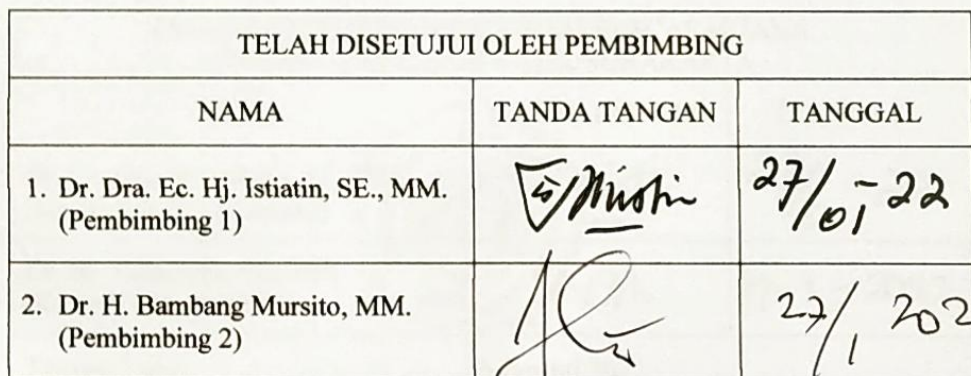 TELAH DISETUJUI OLEH PEMBIMBING
NAMA TANDA TANGAN TANGGAL
1. Dr. Dra. Ec. Hj. Istiatin, SE., MM. 27/01-22
(Pembimbing 1)
2. Dr. H. Bambang Mursito, MM. 27/1 202
(Pembimbing 2)